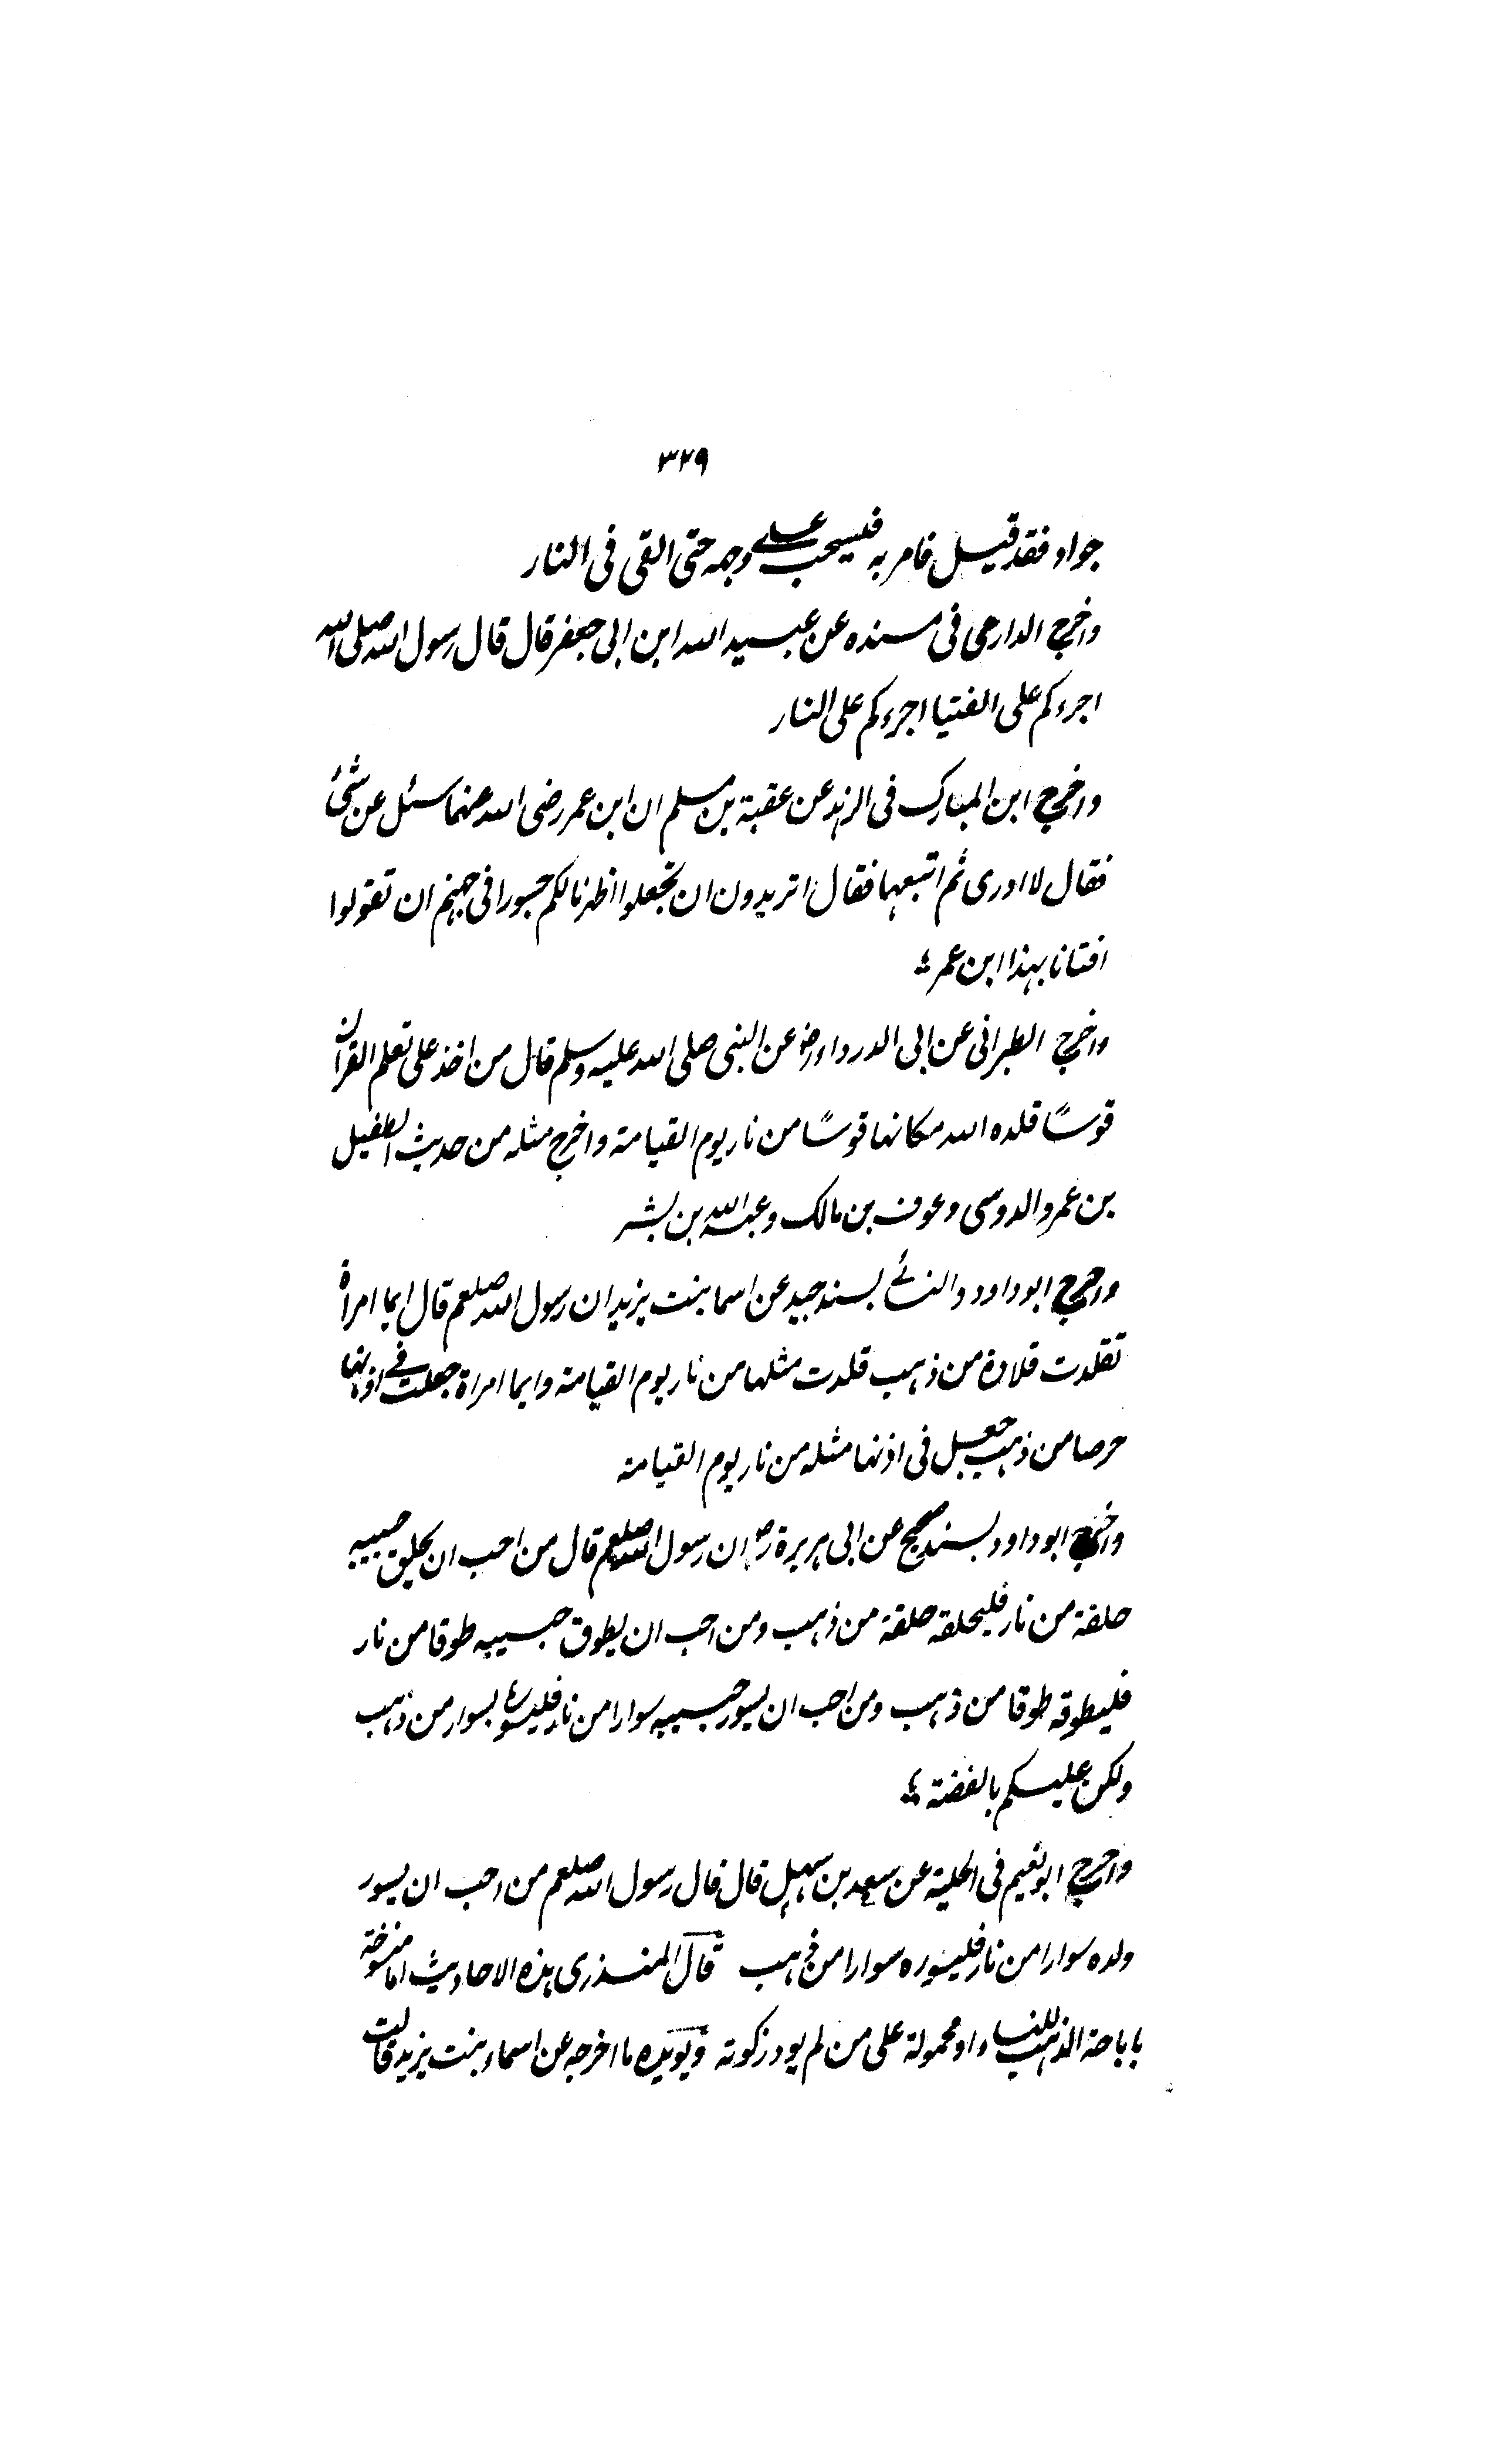 ۳۲۹
جواد فقد قيل فامر به فليسحب على وجهه حتى القى فى النار
واخرج الدارمى فى مسنده عن عبيد الله ابن ابى جعفر قال قال رسول الله صلى الله
اجرءكم على الفتيا اجرءكم على النار
واخرج ابن المبارك فى الزهد عن عقبة بن مسلم ان ابن عمر رضى الله عنهما سئل عن شئ
فقال لا ادرى ثم اتبعها فقال اتريدون ان تجعلوا اظهرنا لكم جسورا فى جهنم ان تقولوا
افتانا بهذا ابن عمر
واخرج الطبرانى عن ابى الدرداء رض عن النبى صلى الله عليه وسلم قال من اخذ على تعلم القرآن
قوسًا قلده الله مكانها قوسًا من نار يوم القيامة واخرج مثله من حديث الطفيل
بن عمرو الدوسى وعوف بن مالك وعبد الله بن بشر
واخرج ابوداود والنسائے بسند جيد عن اسما بنت يزيد ان رسول الله صلعم قال ايما امراة
تقلدت قلادة من ذهب قلدت مثلها من نار يوم القيامة وايما امراة جعلت فے اذنها
حرصا من ذهب جعل فى اذنها مثله من نار يوم القيامة
واخرج ابوداود بسند صحيح عن ابى هريرة رض ان رسول الله صلعم قال من احب ان يحلق حبيبه
حلقة من نار فليحلقه حلقة من ذهب ومن احب ان يطوق حبيبه طوقا من نار
فليطوقه طوقا من ذهب ومن احب ان يسور حبيبه سوارا من نار فليسوره بسوار من ذهب
ولكن عليكم بالفضة
واخرج ابونعيم فى الحلية عن سعد بن سهيل قال قال رسول الله صلعم من احب ان يسور
ولده سوارا من نار فليسوره سوارا من ذهب قال المنذرى هذه الاحاديث اما منسوخة
باباحة الذهب للنساء او محمولة على من لم يود زكوته ويويده ما اخرجه عن اسماء بنت يزيد قالت